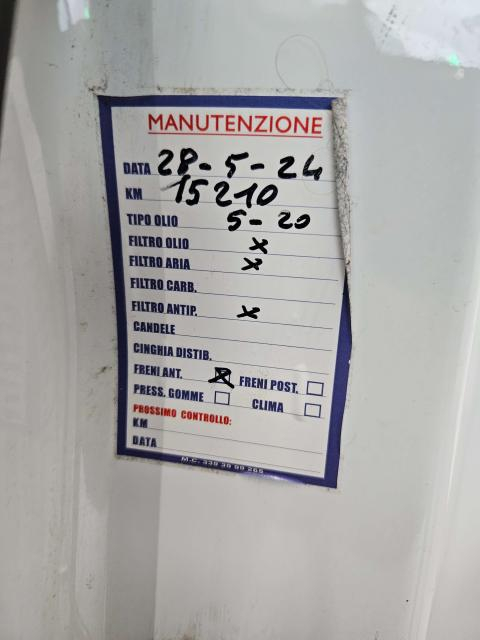 MANUTENZIONE
DATA 28-5-24
KM 15210
TIPO OLIO 5-20
FILTRO OLIO x
FILTRO ARIA x
FILTRO CARB.
FILTRO ANTIP. x
CANDELE
CINGHIA DISTIB.
FRENI ANT. x FRENI POST.
PRESS. GOMME CLIMA
PROSSIMO CONTROLLO:
KM
DATA
M.C. 339 39 99 265